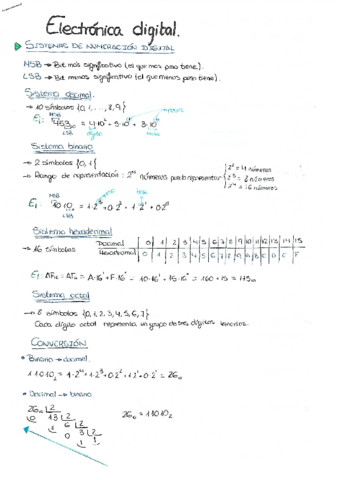 Electrónica digital.
SISTEMAS DE NUMERACIÓN DIGITAL
MSB → Bit más significativo (el que más peso tiene).
LSB → Bit menos significativo (el que menos peso tiene).
Sistema decimal.
→ 10 símbolos {0, 1, ..., 8, 9}
MSB
Ej: 453₁₀ = 4·10² + 5·10¹ + 3·10⁰
LSB dígito
Sistema binario
→ 2 símbolos {0, 1}
→ Rango de representación: números puedo representar
2² = 4 números
2³ = 8 números
2⁴ = 16 números
MSB
Ej: 1010₂ = 1·2³ + 0·2² + 1·2¹ + 0·2⁰
LSB
Sistema hexadecimal
→ 16 símbolos
Decimal 0 1 2 3 4 5 6 7 8 9 10 11 12 13 14 15
Hexadecimal 0 1 2 3 4 5 6 7 8 9 A B C D E F
Sistema octal
→ 8 símbolos {0, 1, 2, 3, 4, 5, 6, 7}
Cada dígito octal representa un grupo de tres dígitos binarios.
CONVERSIÓN.
Binario → decimal.
11010₂ = 1·2⁴ + 1·2³ + 0·2² + 1·2¹ + 0·2⁰ = 26₁₀
Decimal → binario
26₁₀ 2 26₁₀ = 11010₂
0 13 2
1 6 2
0 3 2
1 1